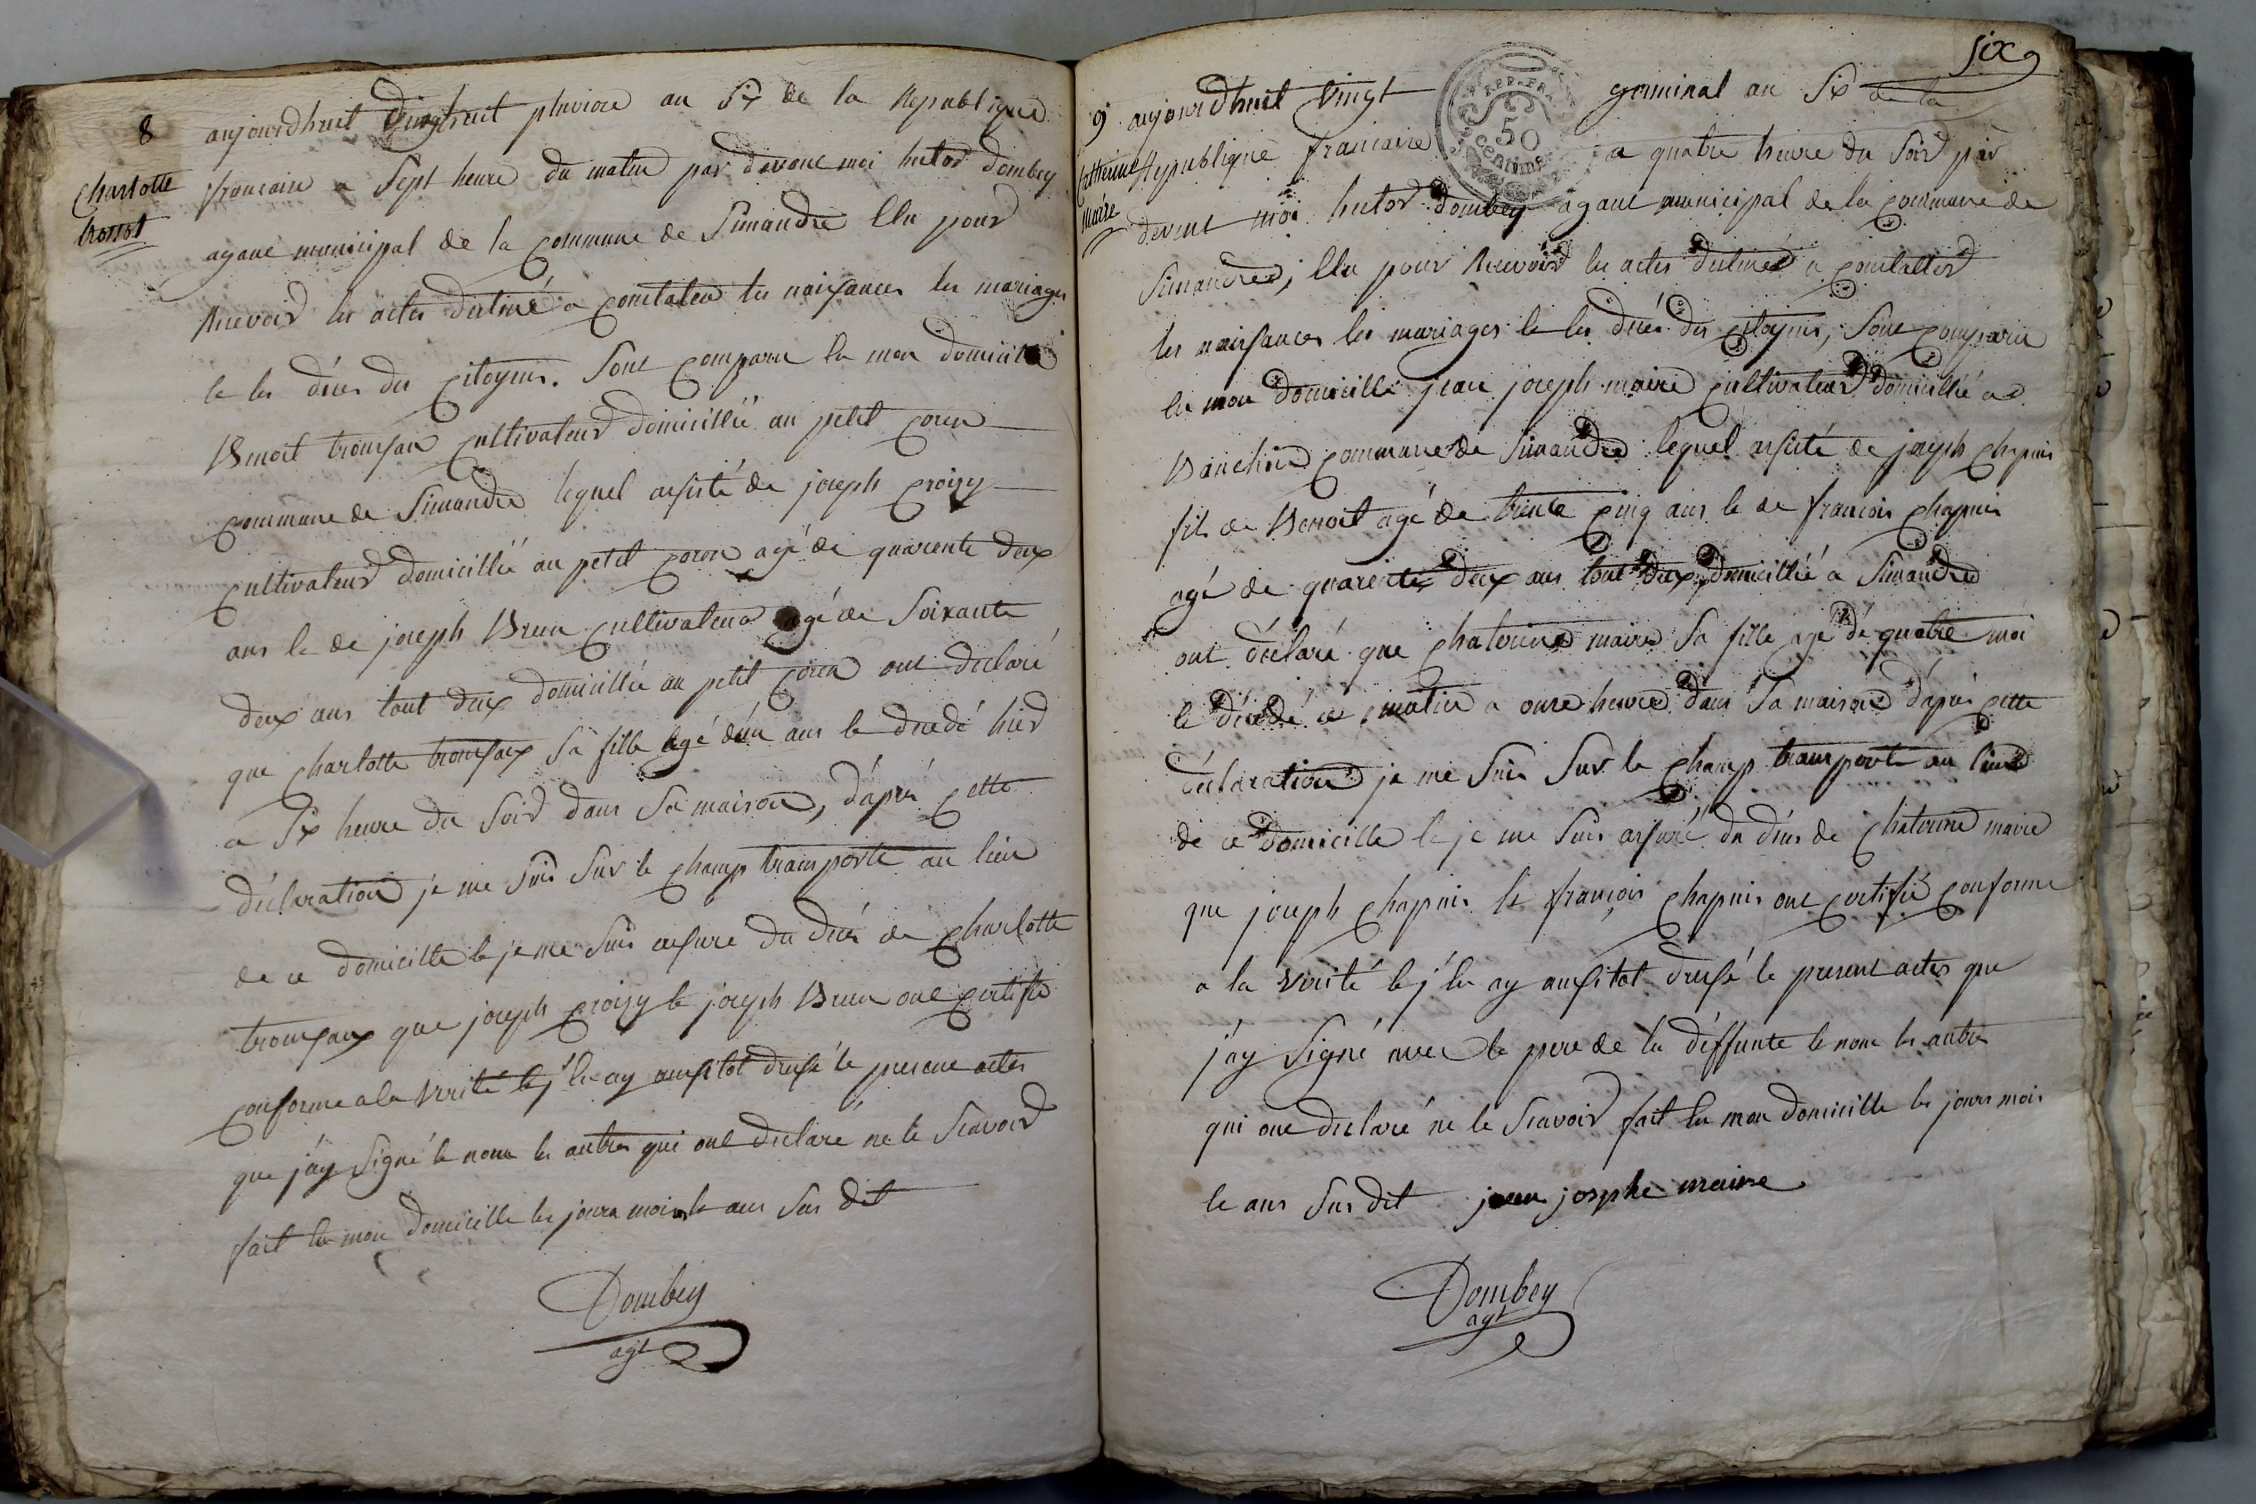 8
Charlotte
aujourdhuit vingthuit pluviose an Six de la Republique
francaise a Sept heure du matin par devant moi hector Dombey
agant municipal de la Commune de Simandre Elu pour
Recevoir les actes destiné a Constater les naissances les mariages
le les déces des Citoyens. Sont Comparu En mon domicille
Benoit cultivateur domicillié au petit Coren
Commune de Simandre lequel assisté de joseph Croisy
Cultivateur domicillié au petit Coren agé de quarente deux
ans le de joseph Brun Cultivateur agé de Soixante
deux ans tout deux domicillié au petit Coren ont declaré
que Charlotte Sa fille agé d'un ans le decedé hier
a Six heure du Soir dans Sa maison, d'aprés Cette
déclaration je me Suis Sur le Champ transporté au lieu
de ce domicille le je me Suis assuré du décés de Charlotte
que joseph Croisy le joseph Brun ont Certifié
Conforme a la verité le j'En ay aussitot dressé le present actes
que j'ay Signé le nom les autres qui ont declaré ne le Scavoir
fait En mon domicille les jours mois le ans Sus dit
Dombey
agt
six
9
Catterine
Maire
aujourdhuit vingt germinal an Six de la
Republique francaise a quatre heure du Soir par
devent moi hector Dombey agant municipal de la Commune de
Simandre, Elu pour Recevoir les actes destinés a Constatter
les naissances les mariages le les décés des Citoyens, Sont Comparu
En mon domicille jean joseph maire Cultivateur domicillié a
Commune de Simandre lequel assisté de joseph Chapuis
fils de Benoit agé de trente Cinq ans le de francois Chapuis
agé de quarente deux ans tout deux domicillié a Simandre
ont déclaré que Chaterine maire Sa fille agé dé quatre moi
le décedé ce matin a onze heure dans Sa maison d'aprés Cette
déclaration je me Suis Sur le Champ transporté au lieu
de ce domicille le je me Suis assuré du décés de Chaterine maire
que joseph Chapuis le françois Chapuis ont Certifié Conforme
a la verité le j'En ay aussitot dressé le present actes que
j'ay Signé avec le pere de la déffunte le nom les autre
qui ont declaré ne le Scavoir fait En mon domicille les jours mois
le ans Sus dit jean josphe maire
Dombey
agt
REP. FRA.
50
centimes